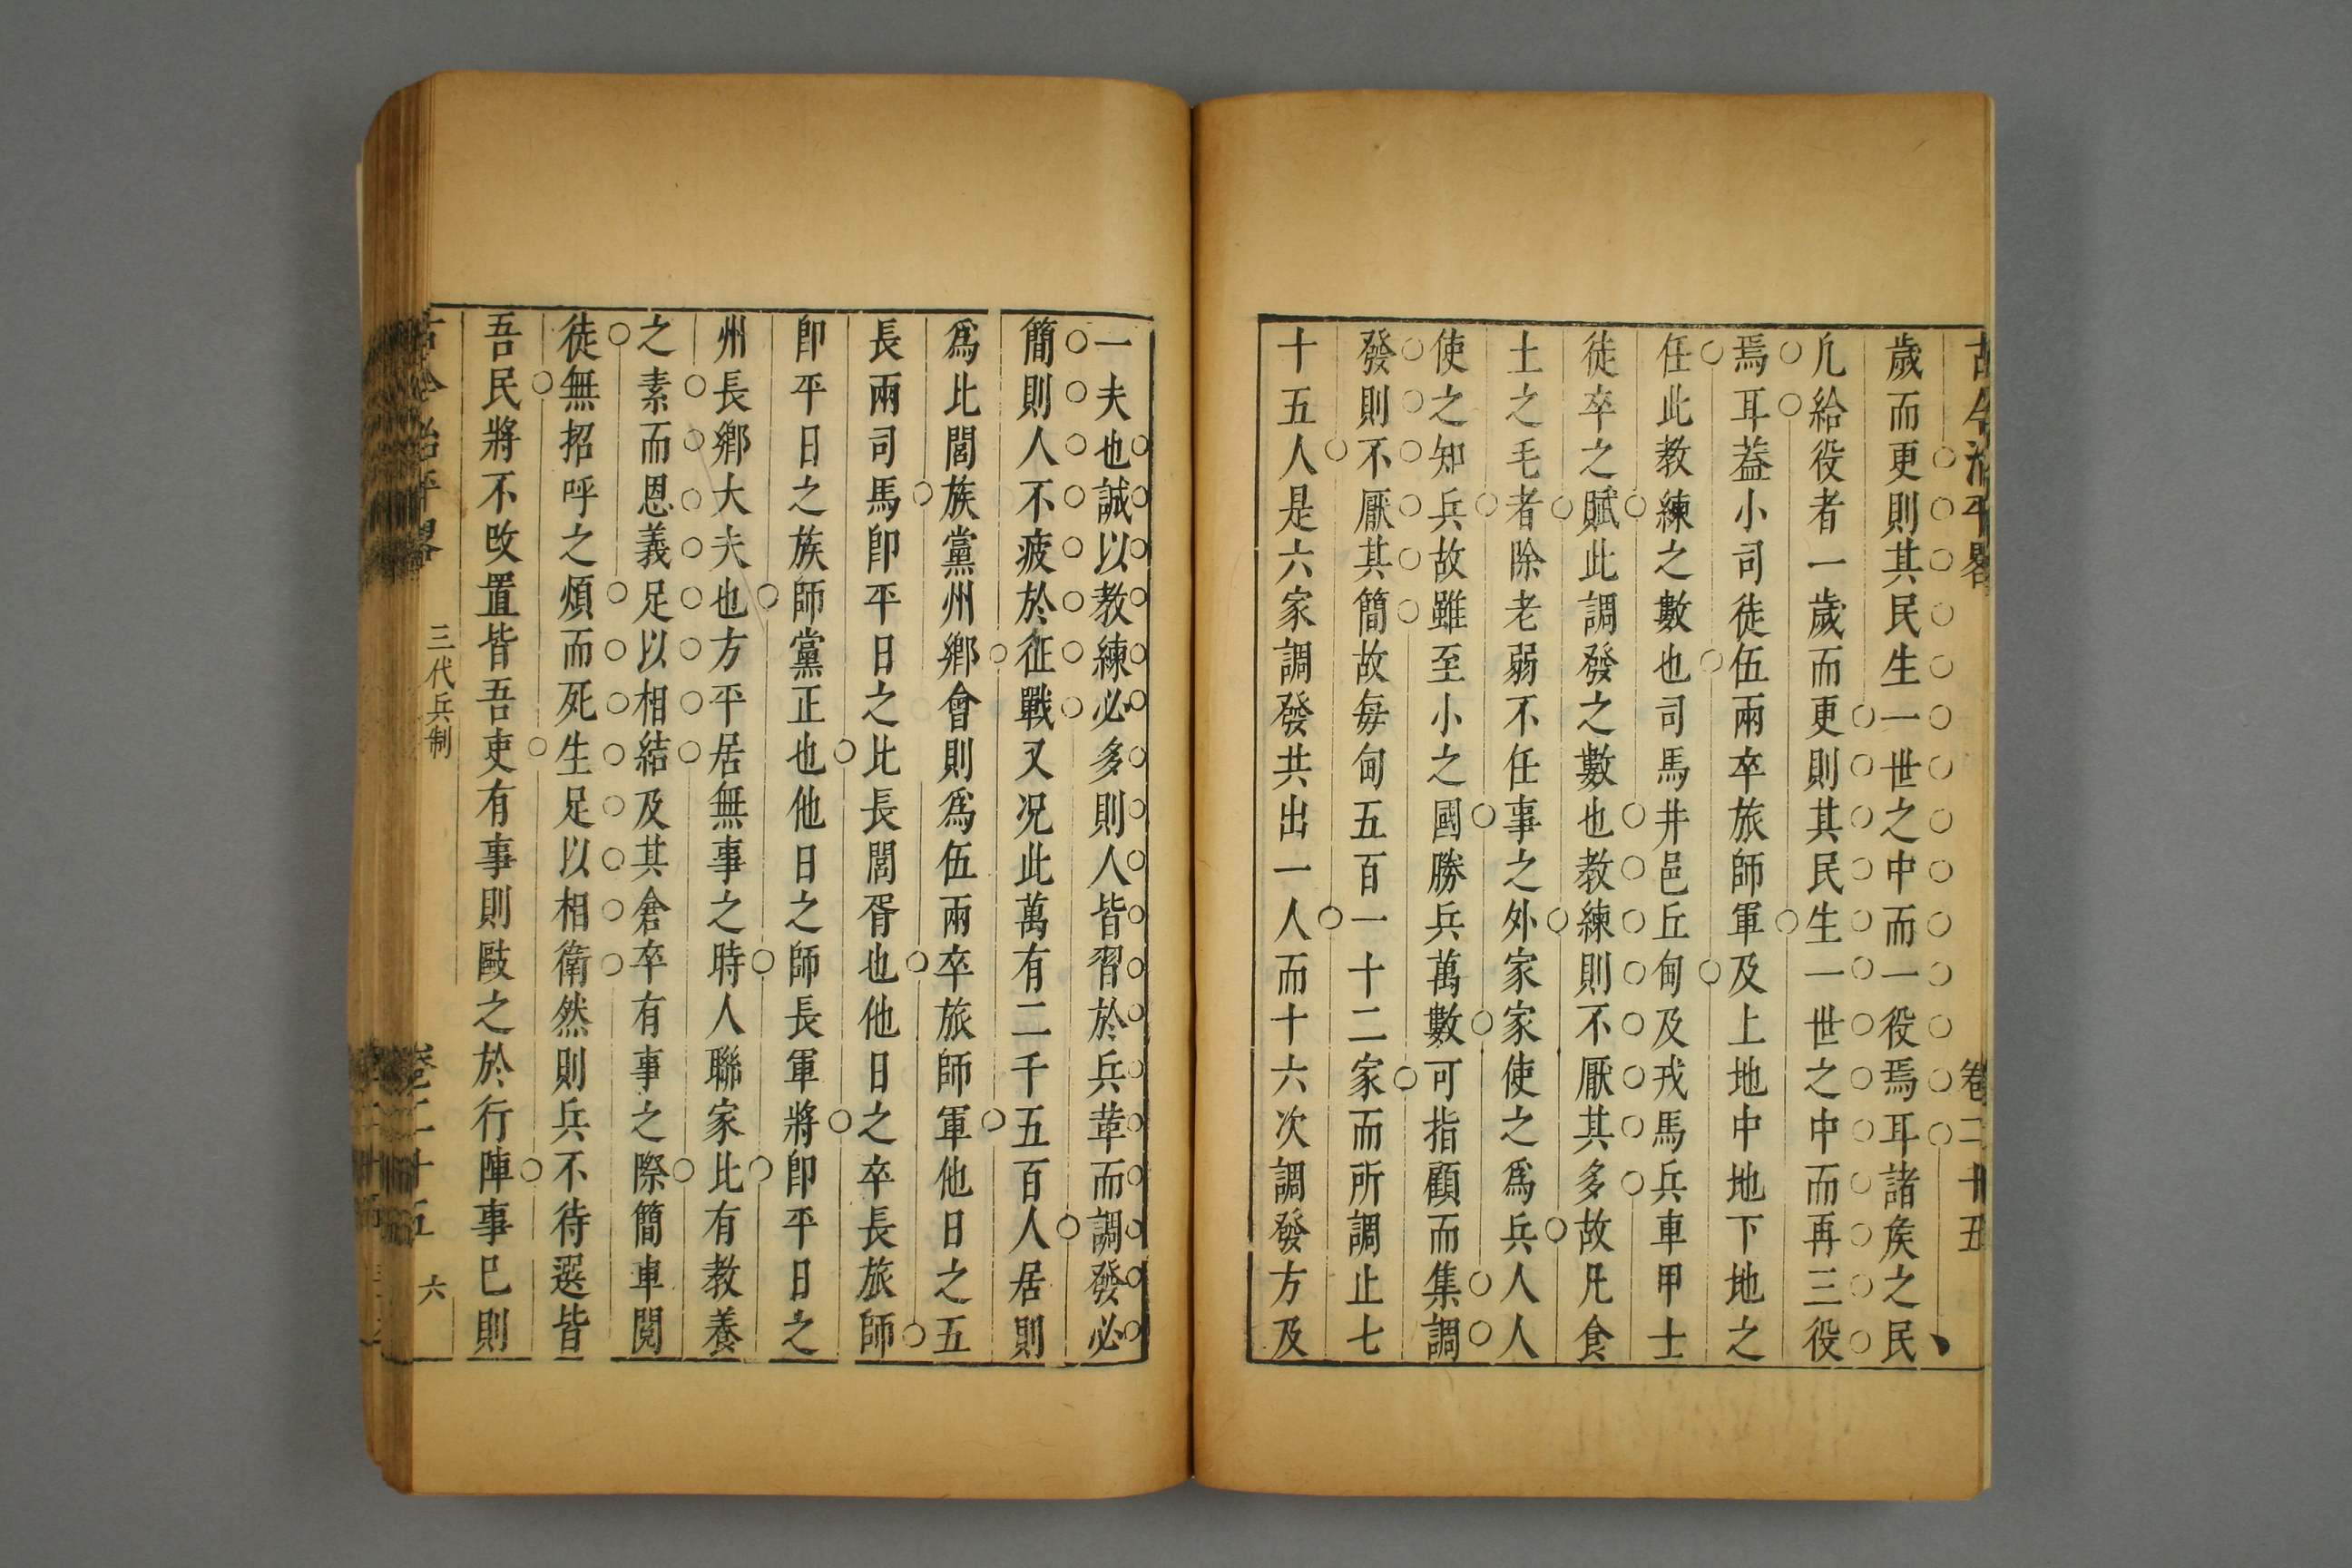 古今治平畧 卷二十五
歲而更則其民生一世之中而一役焉耳諸矦之民
凡給役者一歲而更則其民生一世之中而再三役
焉耳葢小司徒伍兩卒旅師軍及上地中地下地之
任此教練之數也司馬井邑丘甸及戎馬兵車甲士
徒卒之賦此調發之數也教練則不厭其多故凡食
土之毛者除老弱不任事之外家家使之爲兵人人
使之知兵故雖至小之國勝兵萬數可指顧而集調
發則不厭其簡故每甸五百一十二家而所調止七
十五人是六家調發共出一人而十六次調發方及
一夫也誠以教練必多則人皆習於兵革而調發必
簡則人不疲於征戰又况此萬有二千五百人居則
爲比閭族黨州鄉會則爲伍兩卒旅師軍他日之五
長兩司馬卽平日之比長閭胥也他日之卒長旅師
卽平日之族師黨正也他日之師長軍將卽平日之
州長鄉大夫也方平居無事之時人聯家比有教養
之素而恩義足以相結及其倉卒有事之際簡車閱
徒無招呼之煩而死生足以相衛然則兵不待選皆
吾民將不改置皆吾吏有事則敺之於行陣事已則
古今治平畧 三代兵制 卷二十五 六